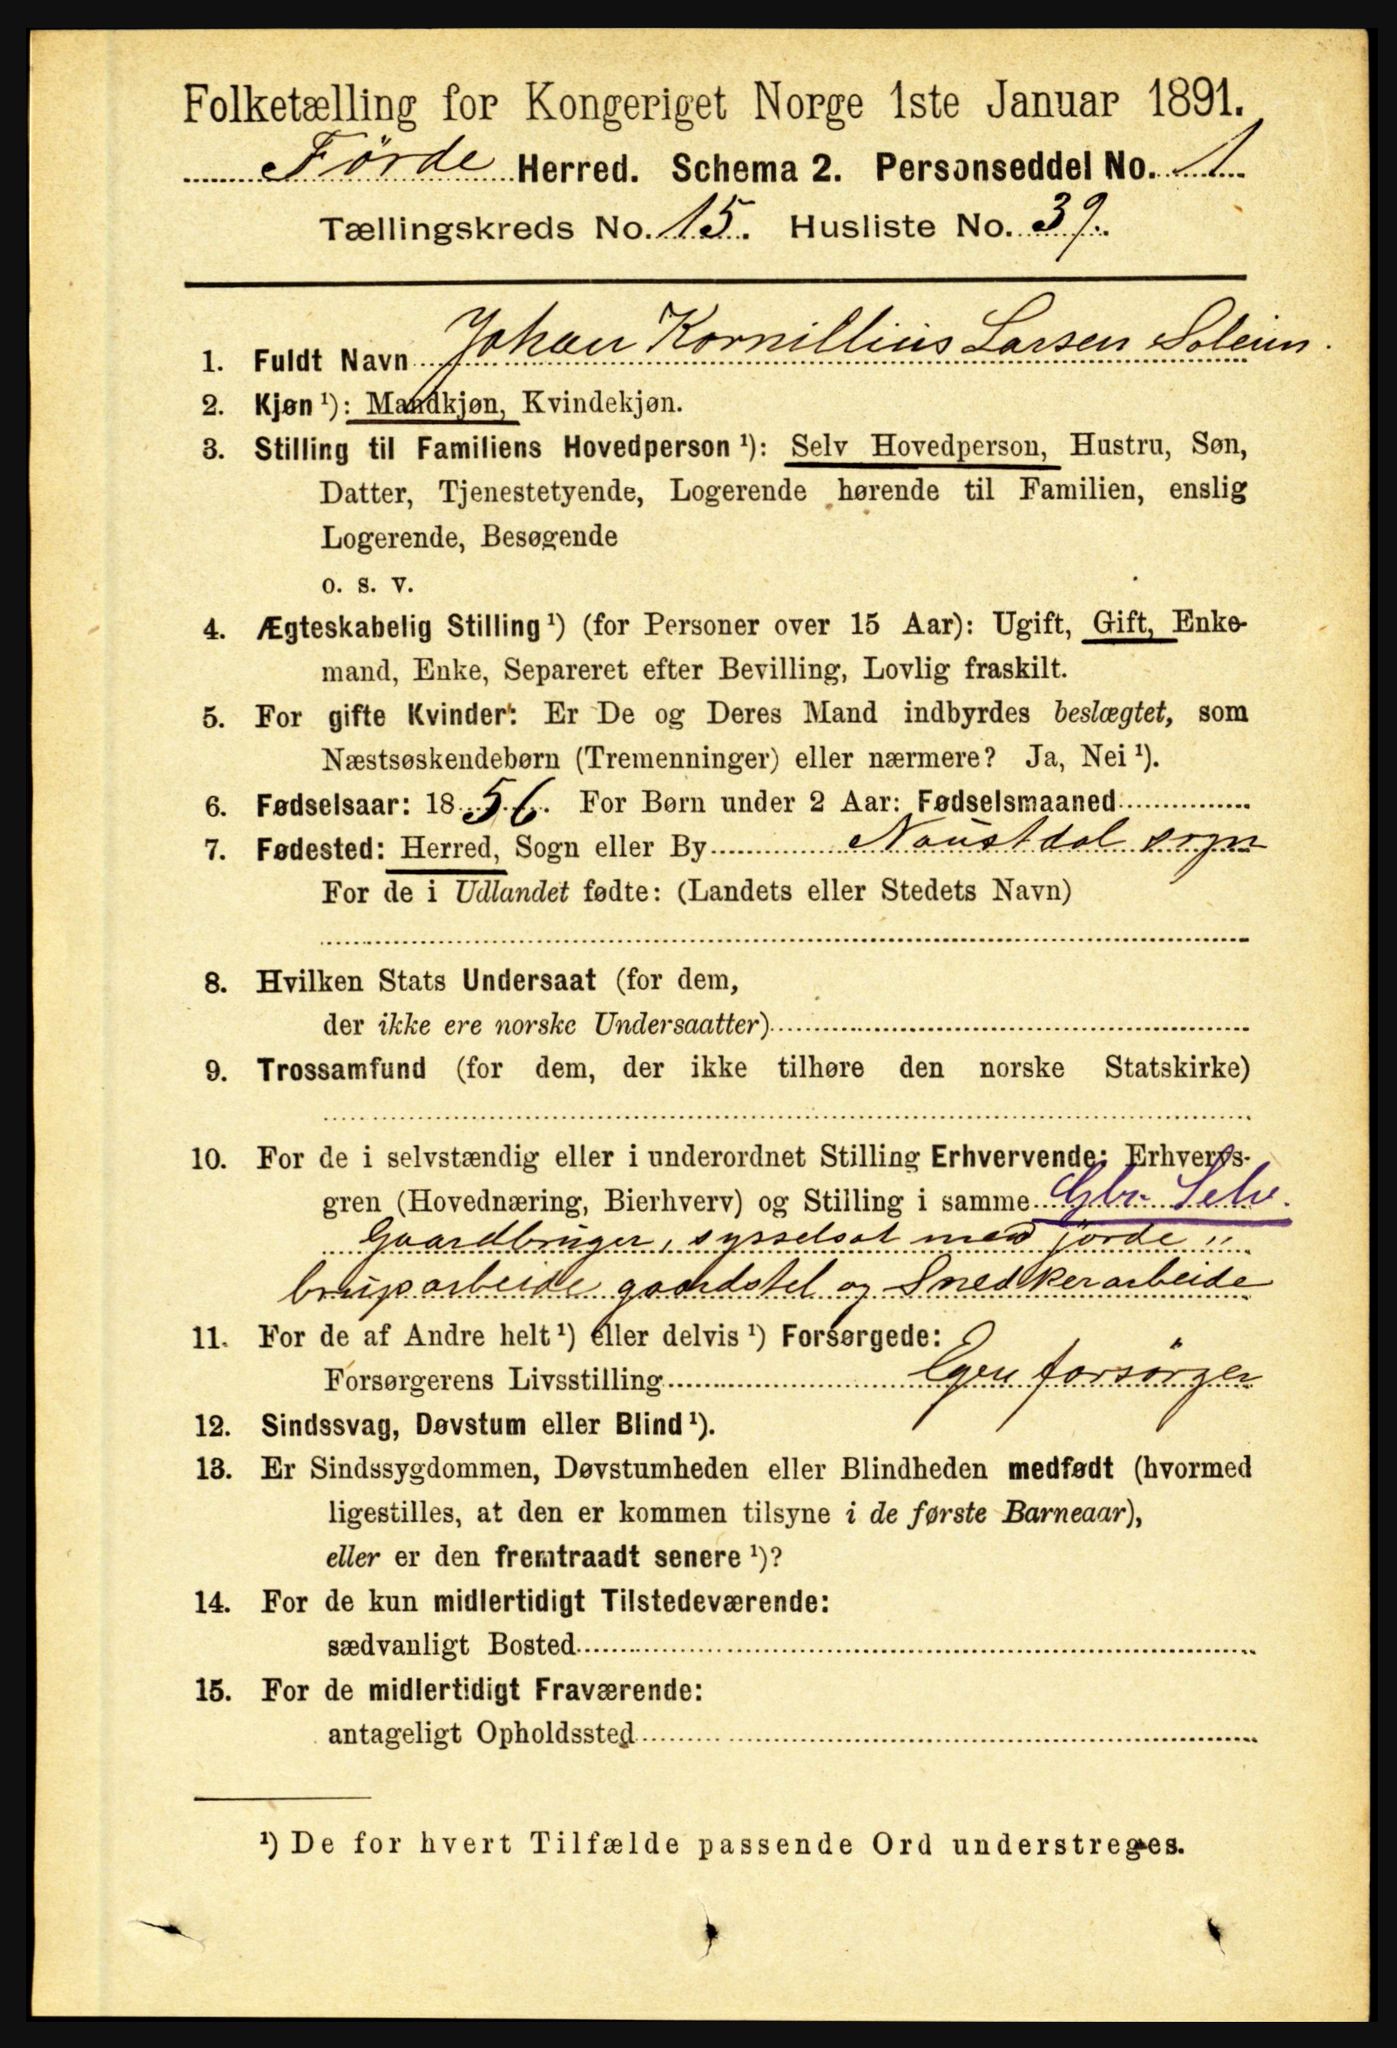 Folketælling for Kongeriget Norge 1ste Januar 1891.
Førde Herred. Schema 2. Personseddel No. 1
Tællingskreds No. 15. Husliste No. 39.
1. Fuldt Navn Johan Kornillius Larsen Soleim.
2. Kjøn ¹): Mandkjøn, Kvindekjøn.
3. Stilling til Familiens Hovedperson ¹): Selv Hovedperson, Hustru, Søn,
Datter, Tjenestetyende, Logerende hørende til Familien, enslig
Logerende, Besøgende
o. s. v.
4. Ægteskabelig Stilling ¹) (for Personer over 15 Aar): Ugift, Gift, Enke-
mand, Enke, Separeret efter Bevilling, Lovlig fraskilt.
5. For gifte Kvinder: Er De og Deres Mand indbyrdes beslægtet, som
Næstsøskendebørn (Tremenninger) eller nærmere? Ja, Nei ¹).
6. Fødselsaar: 1856. For Børn under 2 Aar: Fødselsmaaned
7. Fødested: Herred, Sogn eller By Naustdal sogn
For de i Udlandet fødte: (Landets eller Stedets Navn)
8. Hvilken Stats Undersaat (for dem,
der ikke ere norske Undersaatter)
9. Trossamfund (for dem, der ikke tilhøre den norske Statskirke)
10. For de i selvstændig eller i underordnet Stilling Erhvervende: Erhvervs-
gren (Hovednæring, Bierhverv) og Stilling i samme Gbr. Selv.
Gaardbruger, sysselsat med jorde „
brugarbeide gaardstel og Snedkerarbeide
11. For de af Andre helt ¹) eller delvis ¹) Forsørgede:
Forsørgerens Livsstilling Egen forsørger
12. Sindssvag, Døvstum eller Blind ¹).
13. Er Sindssygdommen, Døvstumheden eller Blindheden medfødt (hvormed
ligestilles, at den er kommen tilsyne i de første Barneaar),
eller er den fremtraadt senere ¹)?
14. For de kun midlertidigt Tilstedeværende:
sædvanligt Bosted
15. For de midlertidigt Fraværende:
antageligt Opholdssted
¹) De for hvert Tilfælde passende Ord understreges.